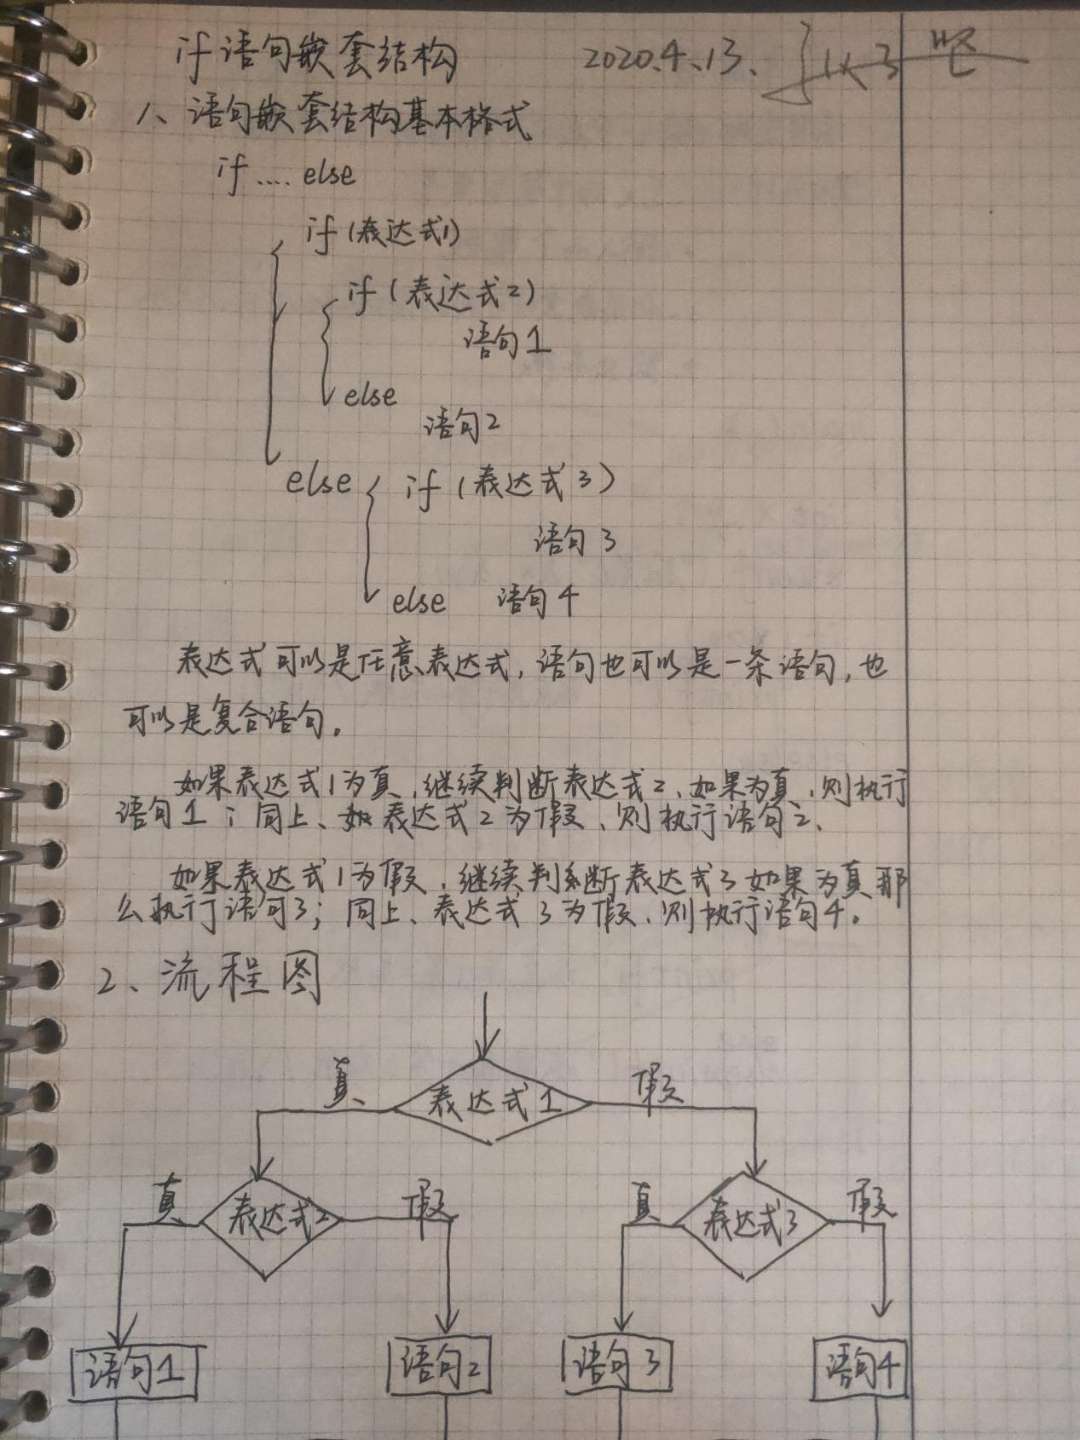 if语句嵌套结构 2020.4.13.
1、语句嵌套结构基本格式
if .... else
if (表达式1)
if (表达式2)
语句1
else
语句2
else if (表达式3)
语句3
else 语句4
表达式可以是任意表达式,语句也可以是一条语句,也
可以是复合语句。
如果表达式1为真,继续判断表达式2,如果为真,则执行
语句1;同上、如表达式2为假、则执行语句2、
如果表达式1为假,继续判断表达式3如果为真那
么执行语句3;同上、表达式3为假、则执行语句4。
2、流程图
真 表达式1 假
真 表达式2 假 真 表达式3 假
语句1 语句2 语句3 语句4